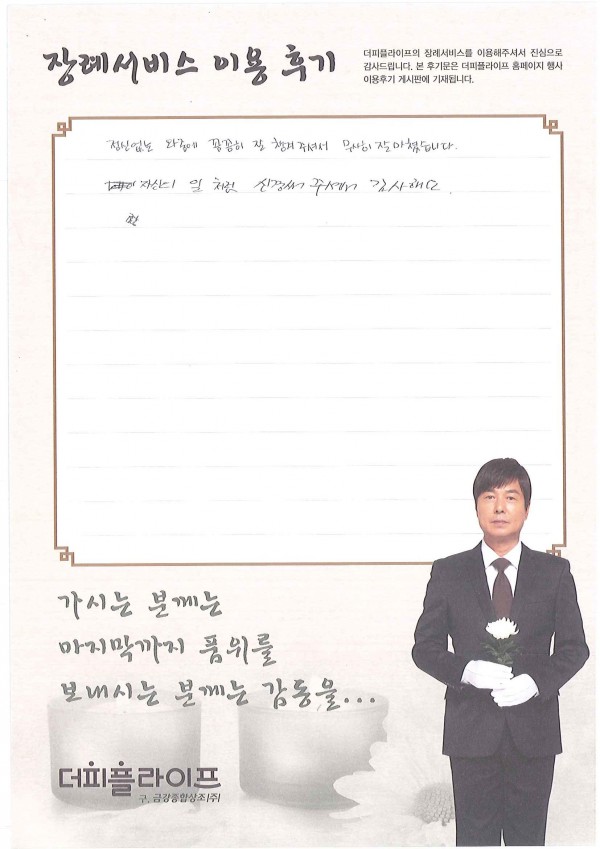 장례서비스 이용 후기
더피플라이프의 장례서비스를 이용해주셔서 진심으로
감사드립니다. 본 후기문은 더피플라이프 홈페이지 행사
이용후기 게시판에 기재됩니다.
정신없는 와중에 꼼꼼히 잘 챙겨 주셔서 무사히 잘 마쳤습니다.
자신의 일 처럼 신경써 주셔서 감사해요.
가시는 분께는
마지막까지 품위를
보내시는 분께는 감동을...
더피플라이프
구. 금강종합상조(주)